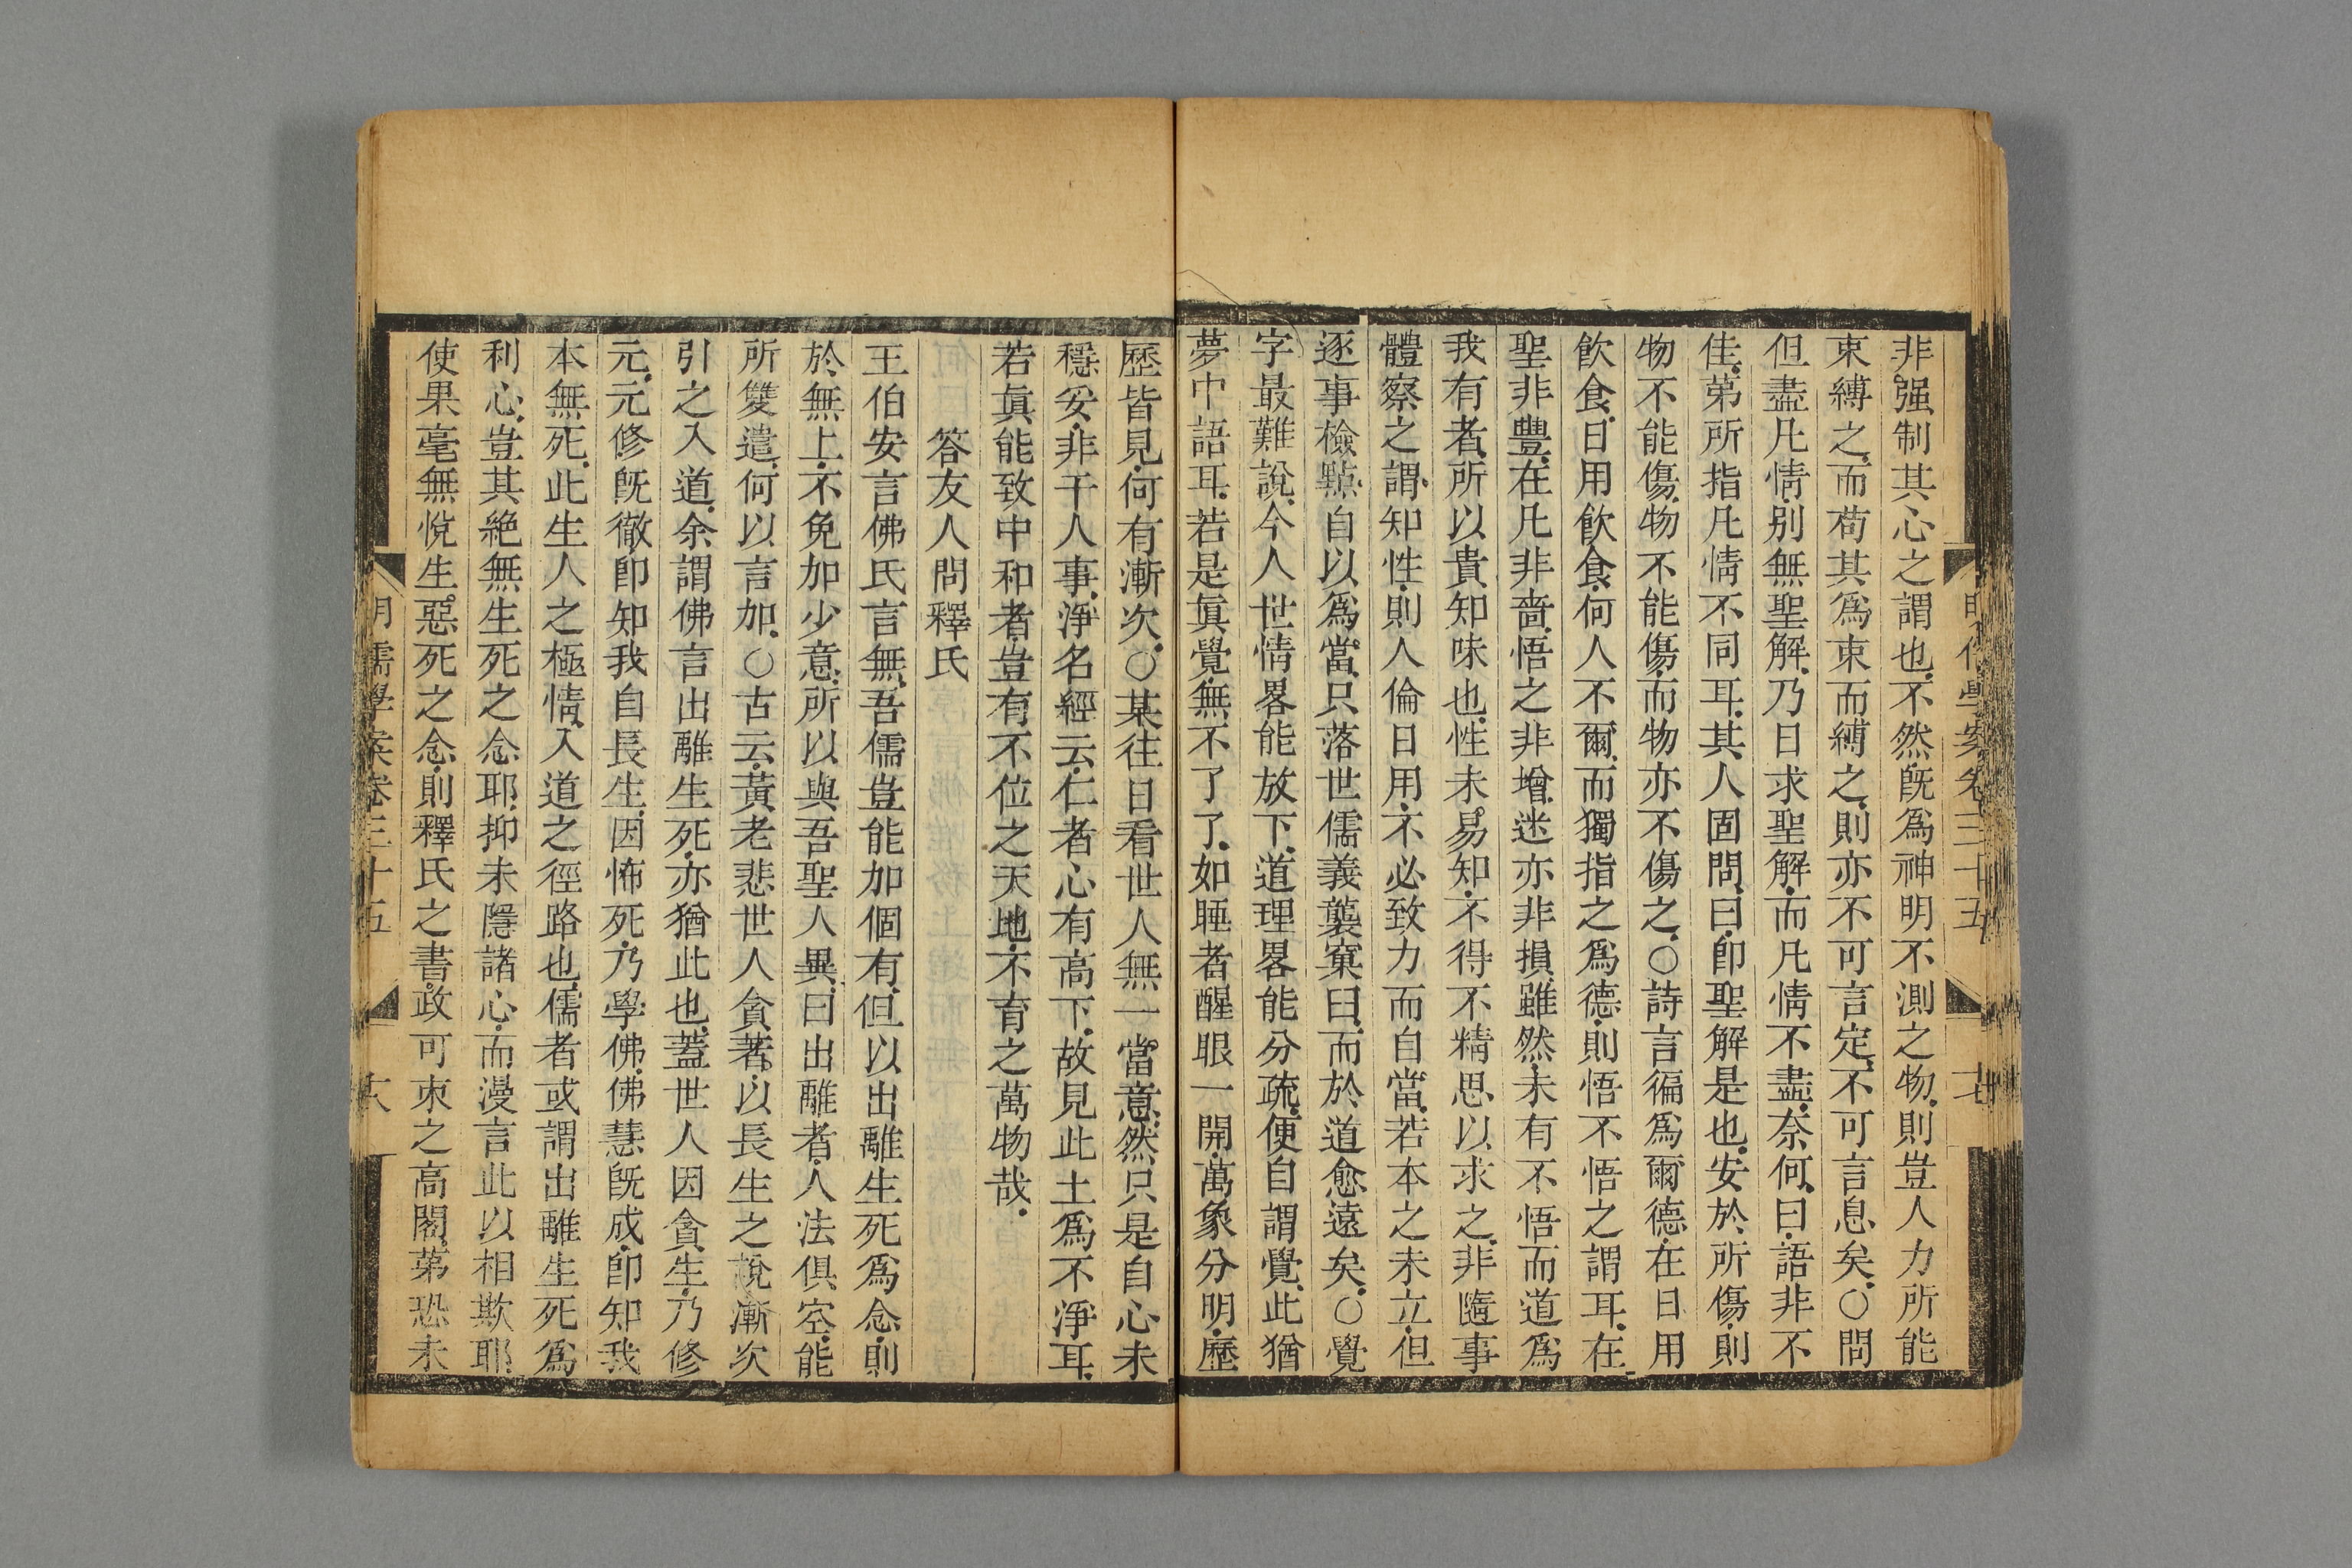 非强制其心之謂也不然既爲神明不測之物則豈人力所能
束縛之而苟其爲束而縛之則亦不可言定不可言息矣○問
但盡凡情別無聖解乃日求聖解而凡情不盡奈何曰語非不
佳第所指凡情不同耳其人固問曰卽聖解是也安於所傷則
物不能傷物不能傷而物亦不傷之○詩言徧爲爾德在日用
飲食日用飲食何人不爾而獨指之爲德則悟不悟之謂耳在
聖非豐在凡非嗇悟之非增迷亦非損雖然未有不悟而道爲
我有者所以貴知味也性未易知不得不精思以求之非隨事
體察之謂知性則人倫日用不必致力而自當若本之未立但
逐事檢點自以爲當只落世儒義襲窠臼而於道愈遠矣○覺
字最難說今人世情畧能放下道理畧能分疏便自謂覺此猶
夢中語耳若是眞覺無不了了如睡者醒眼一開萬象分明歷
明儒學案卷三十五
歷皆見何有漸次○某往日看世人無一當意然只是自心未
穩妥非干人事淨名經云仁者心有高下故見此土爲不淨耳
若眞能致中和者豈有不位之天地不育之萬物哉
答友人問釋氏
王伯安言佛氏言無吾儒豈能加個有但以出離生死爲念則
於無上不免加少意所以與吾聖人異曰出離者人法俱空能
所雙遣何以言加○古云黃老悲世人貪著以長生之說漸次
引之入道余謂佛言出離生死亦猶此也蓋世人因貪生乃修
元元修旣徹卽知我自長生因怖死乃學佛佛慧旣成卽知我
本無死此生人之極情入道之徑路也儒者或謂出離生死爲
利心豈其絕無生死之念耶抑未隱諸心而漫言此以相欺耶
使果毫無悅生惡死之念則釋氏之書政可束之高閣第恐未
明儒學案卷三十五